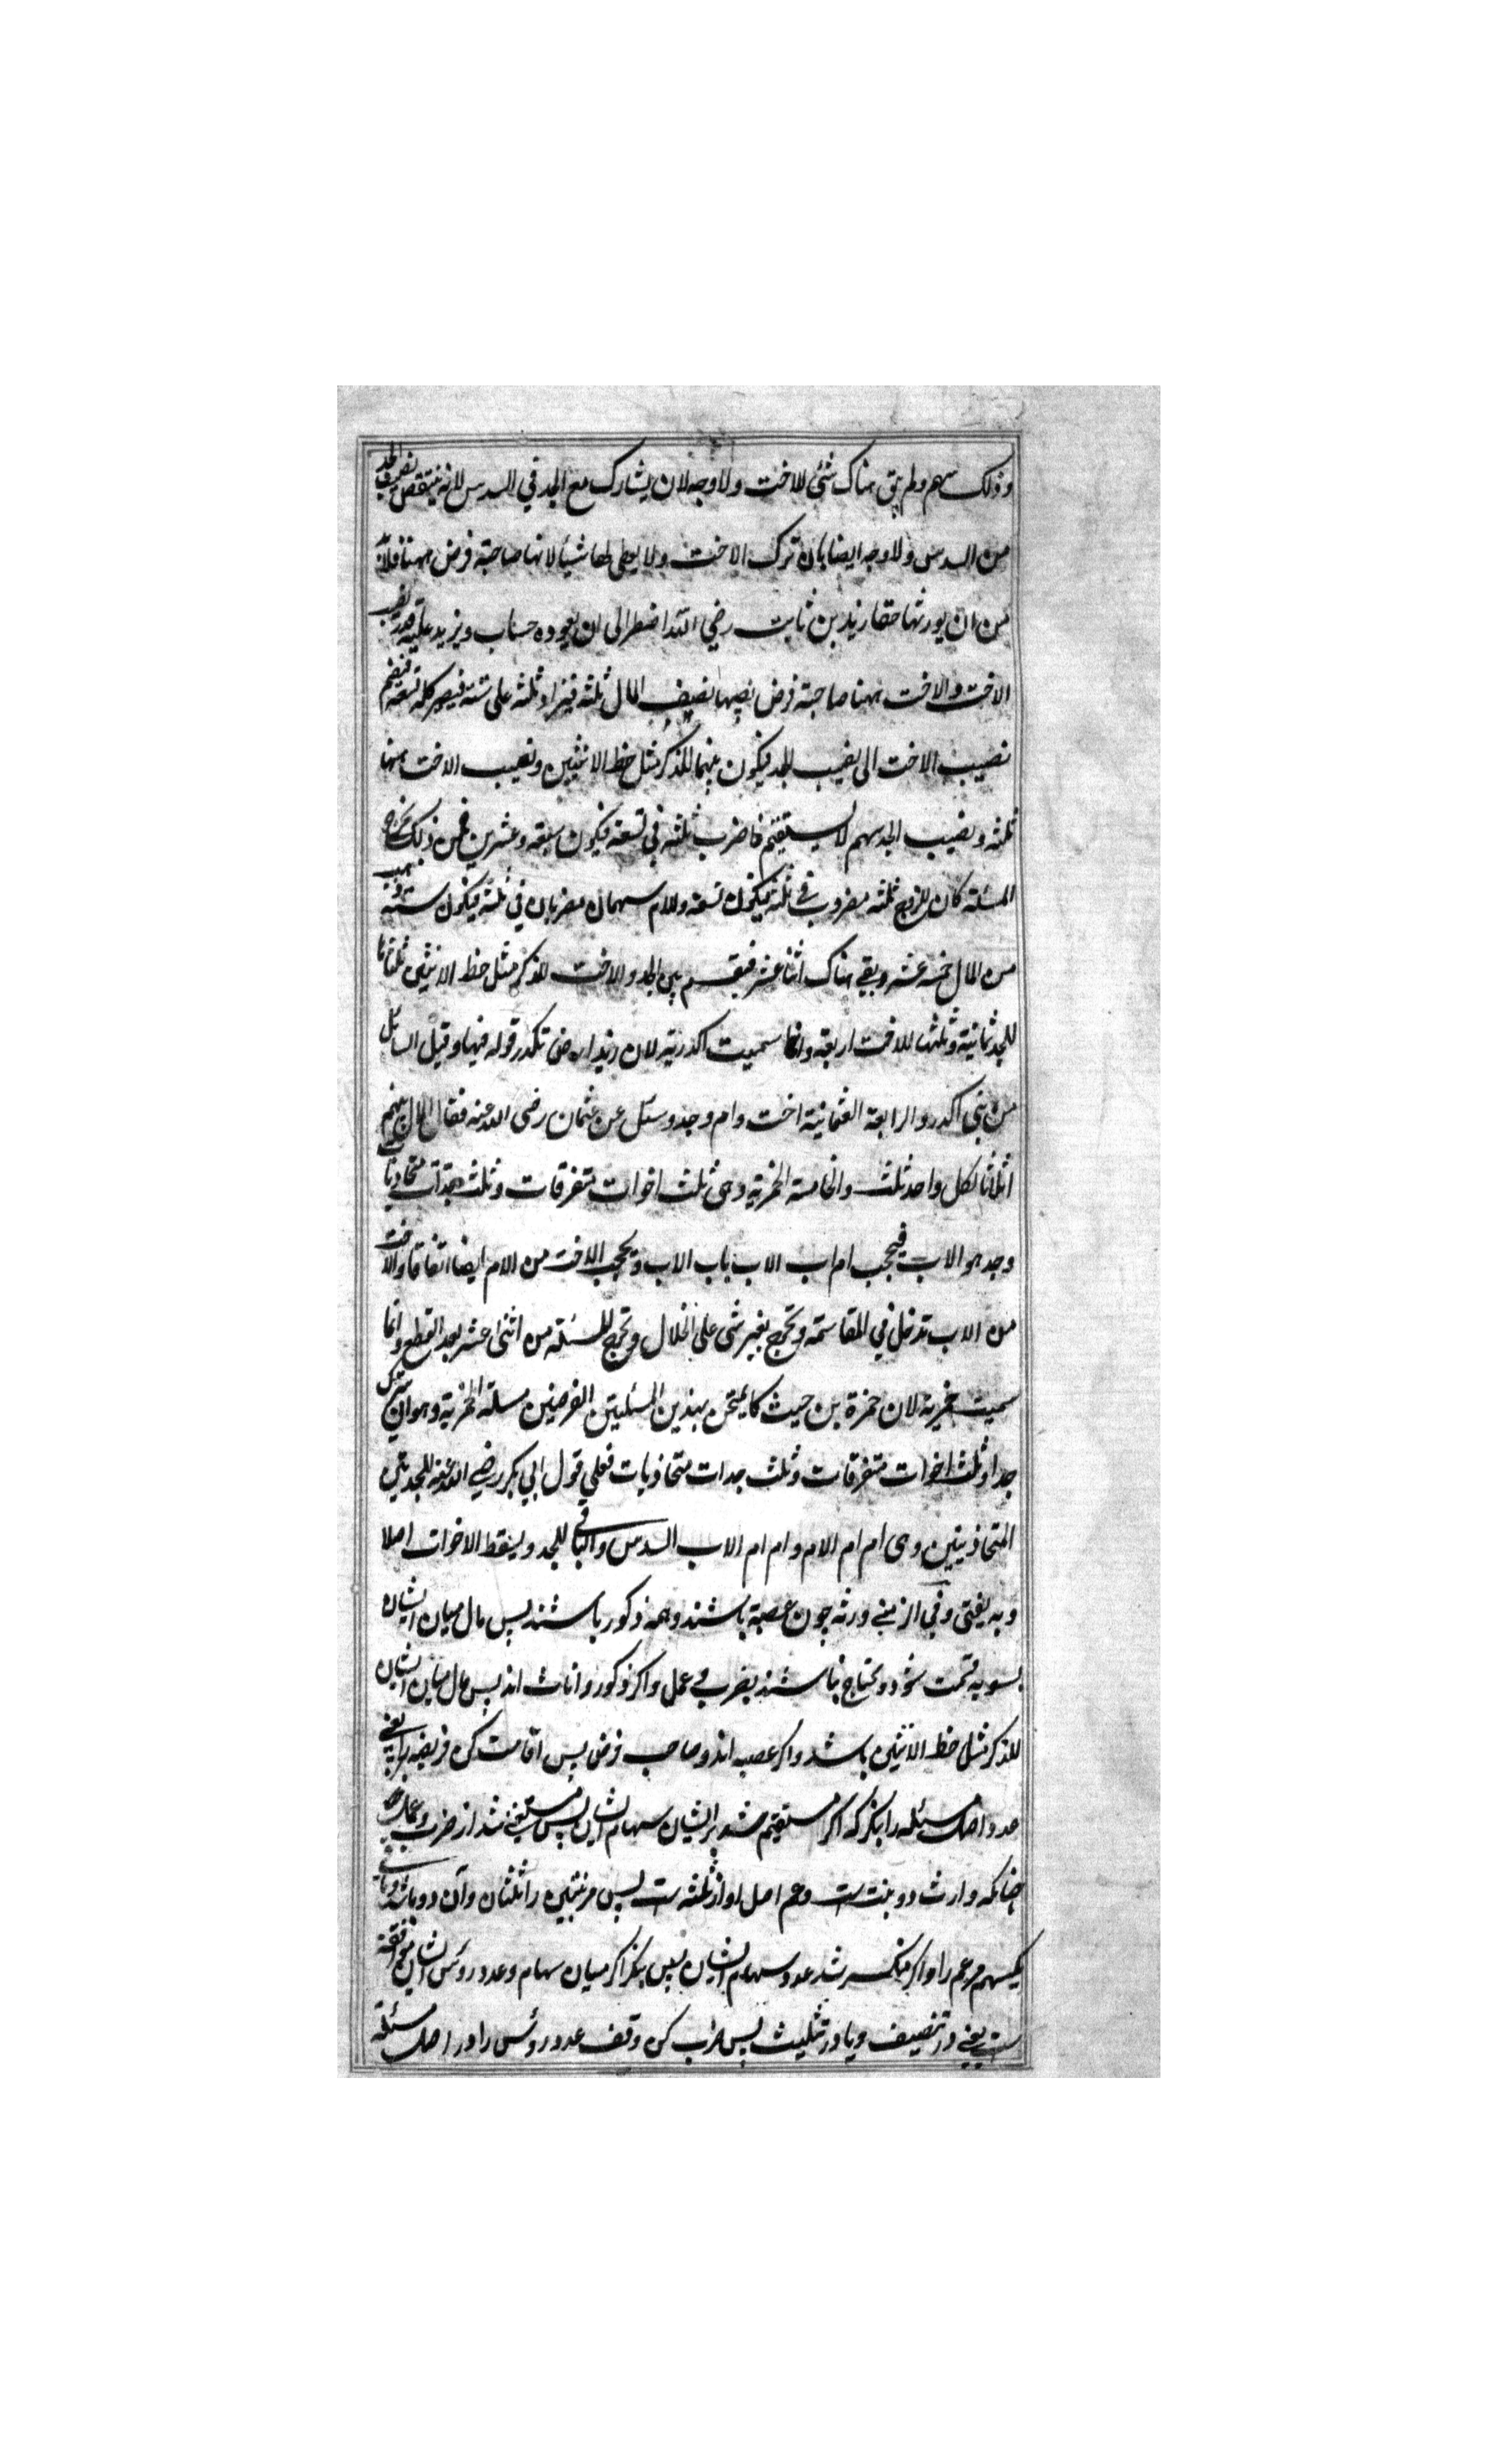 وذلك سهم ولم يبق هناك شئ للاخت ولا وجه لان يشارك مع الجد في السدس لانه ينتقص نصيب الجد
من السدس ولا وجه ايضا بان ترك الاخت ولا يعطى لها شيا لانها صاحبة فرض ههنا فلابد
من ان يورثها حقا زيد بن ثابت رضي الله اضطر الى ان يعوده حساب ويزيد عليه قدر
الاخت والاخت ههنا صاحبة فرض نصيبها نصف المال ثلثه فيزاد ثلثه على ستة فيصير كله تسعة فيضم
نصيب الاخت الى نصيب الجد فيكون بينهما للذكر مثل حظ الانثيين ونصيب الاخت منها
ثلثه ونصيب الجد سهم لا يستقيم فاضرب ثلثه في تسعة فيكون سبعة وعشرين فمن ذلك تخرج
المسئلة كان للزوج ثلثه مضروب في ثلثة فيكون تسعة وللام سهمان مضربان في ثلثة فيكون ستة
من المال خمسة عشر وبقي هناك اثنا عشر فيقسم بين الجد والاخت للذكر مثل حظ الانثيين ثلثاها
للجد ثمانية وثلثها للاخت اربعة وانما سميت اكدرية لان زيدا رض تكدر قوله فيها وقيل السائل
من بني اكدر والرابعة العثمانية اخت وام وجد وسئل عن عثمان رضى الله عنه فقال المال بينهم
اثلاثا لكل واحد ثلث والخامسة الحمزية وهى ثلث اخوات متفرقات وثلث جدات متحاذيات
وجد هو الاب فيحجب ام اب الاب باب الاب ويحجب الاخت من الام ايضا اتفاقا والاخت
من الاب تدخل في المقاسمة وتخرج بغير شى على الخلال وتخرج المسئلة من اثنى عشر بعد القطع وانما
سميت حمزية لان حمزة بن حيث كا يمتحن بهذين المسئلتين الفرضيين مسلة الحمزية وهو ان ترك
جدا وثلث اخوات متفرقات وثلث جدات متحاذيات فعلي قول ابي بكر رضي الله عنه للجدتين
المتحاذيتين وهى ام ام الام وام ام الاب السدس والباقي للجد ويسقط الاخوات اصلا
وبه يفتى وفي از منے ورثه چون عصبة باشند وهمه ذكور باشند پس مال ميان ايشان
بسويه قسمت شود ومحتاج نباشند بضرب و عمل واكر ذكور واناث اند پس مال ميان ايشان
للذكر مثل حظ الانثيين باشد واكر عصبه اند وصاحب فرض پس اقامت كن فريضه يعنے
عدد اصل مسئله را بنكر كه اكر مستقيم شد بر ايشان سهام ايشان پس مستغنے شد از ضرب وعمل
چنانكه وارث دو بنت ست وعم اصل او از ثلثه ست پس مر بنتين را ثلثان وآن دو باشد وباقے
يكسهم مر عم را واكر منكسر شد عدد سهام ايشان پس بنكر اكر ميان سهام وعدد روس ايشان موافقة
ست يعنے در تنصيف ويا در تثليث پس ضرب كن وقف عدد روس را در اصل مسئلة